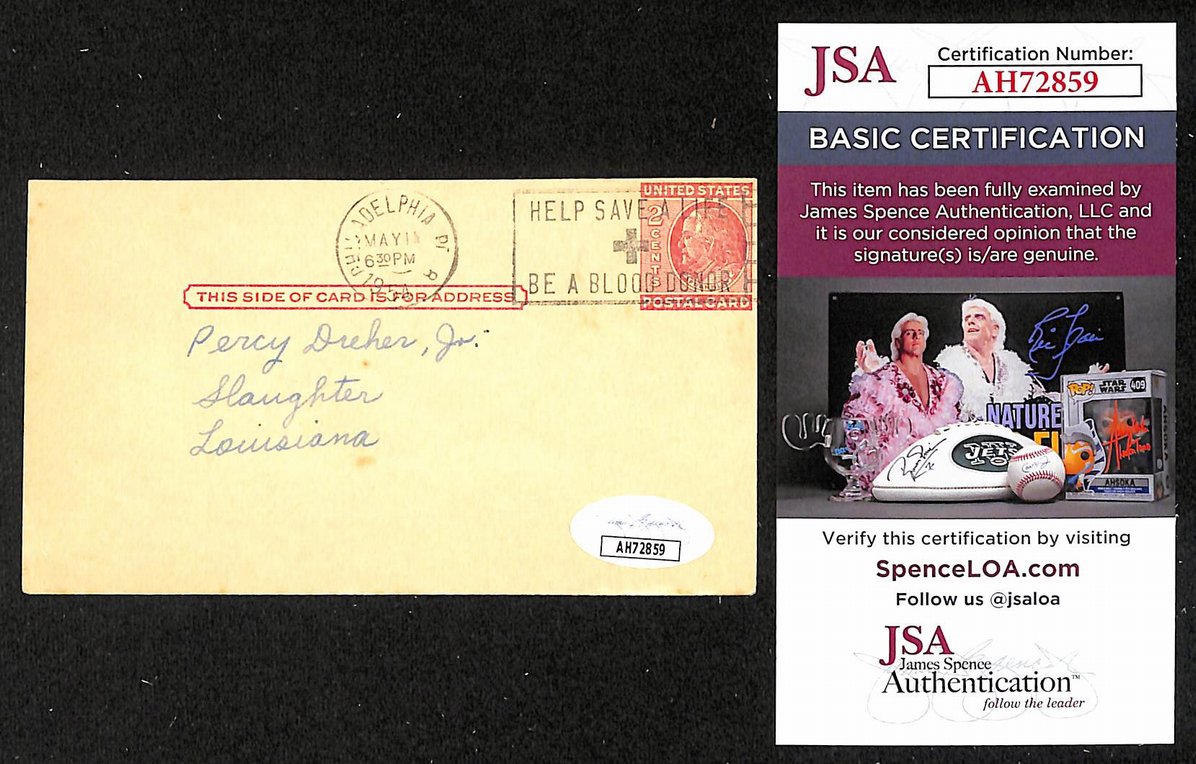 PHILADELPHIA PA
MAY 1
6 30 PM
1954
HELP SAVE A LIFE
BE A BLOOD DONOR
UNITED STATES
2 CENTS
POSTAL CARD
THIS SIDE OF CARD IS FOR ADDRESS
Percy Dreher, Jr.
Slaughter
Louisiana
AH72859
JSA
Certification Number:
AH72859
BASIC CERTIFICATION
This item has been fully examined by
James Spence Authentication, LLC and
it is our considered opinion that the
signature(s) is/are genuine.
Ric Flair
NATURE
JETS
POP!
STAR WARS
409
AHSOKA
AHSOKA
Verify this certification by visiting
SpenceLOA.com
Follow us @jsaloa
JSA
James Spence
Authentication™
follow the leader